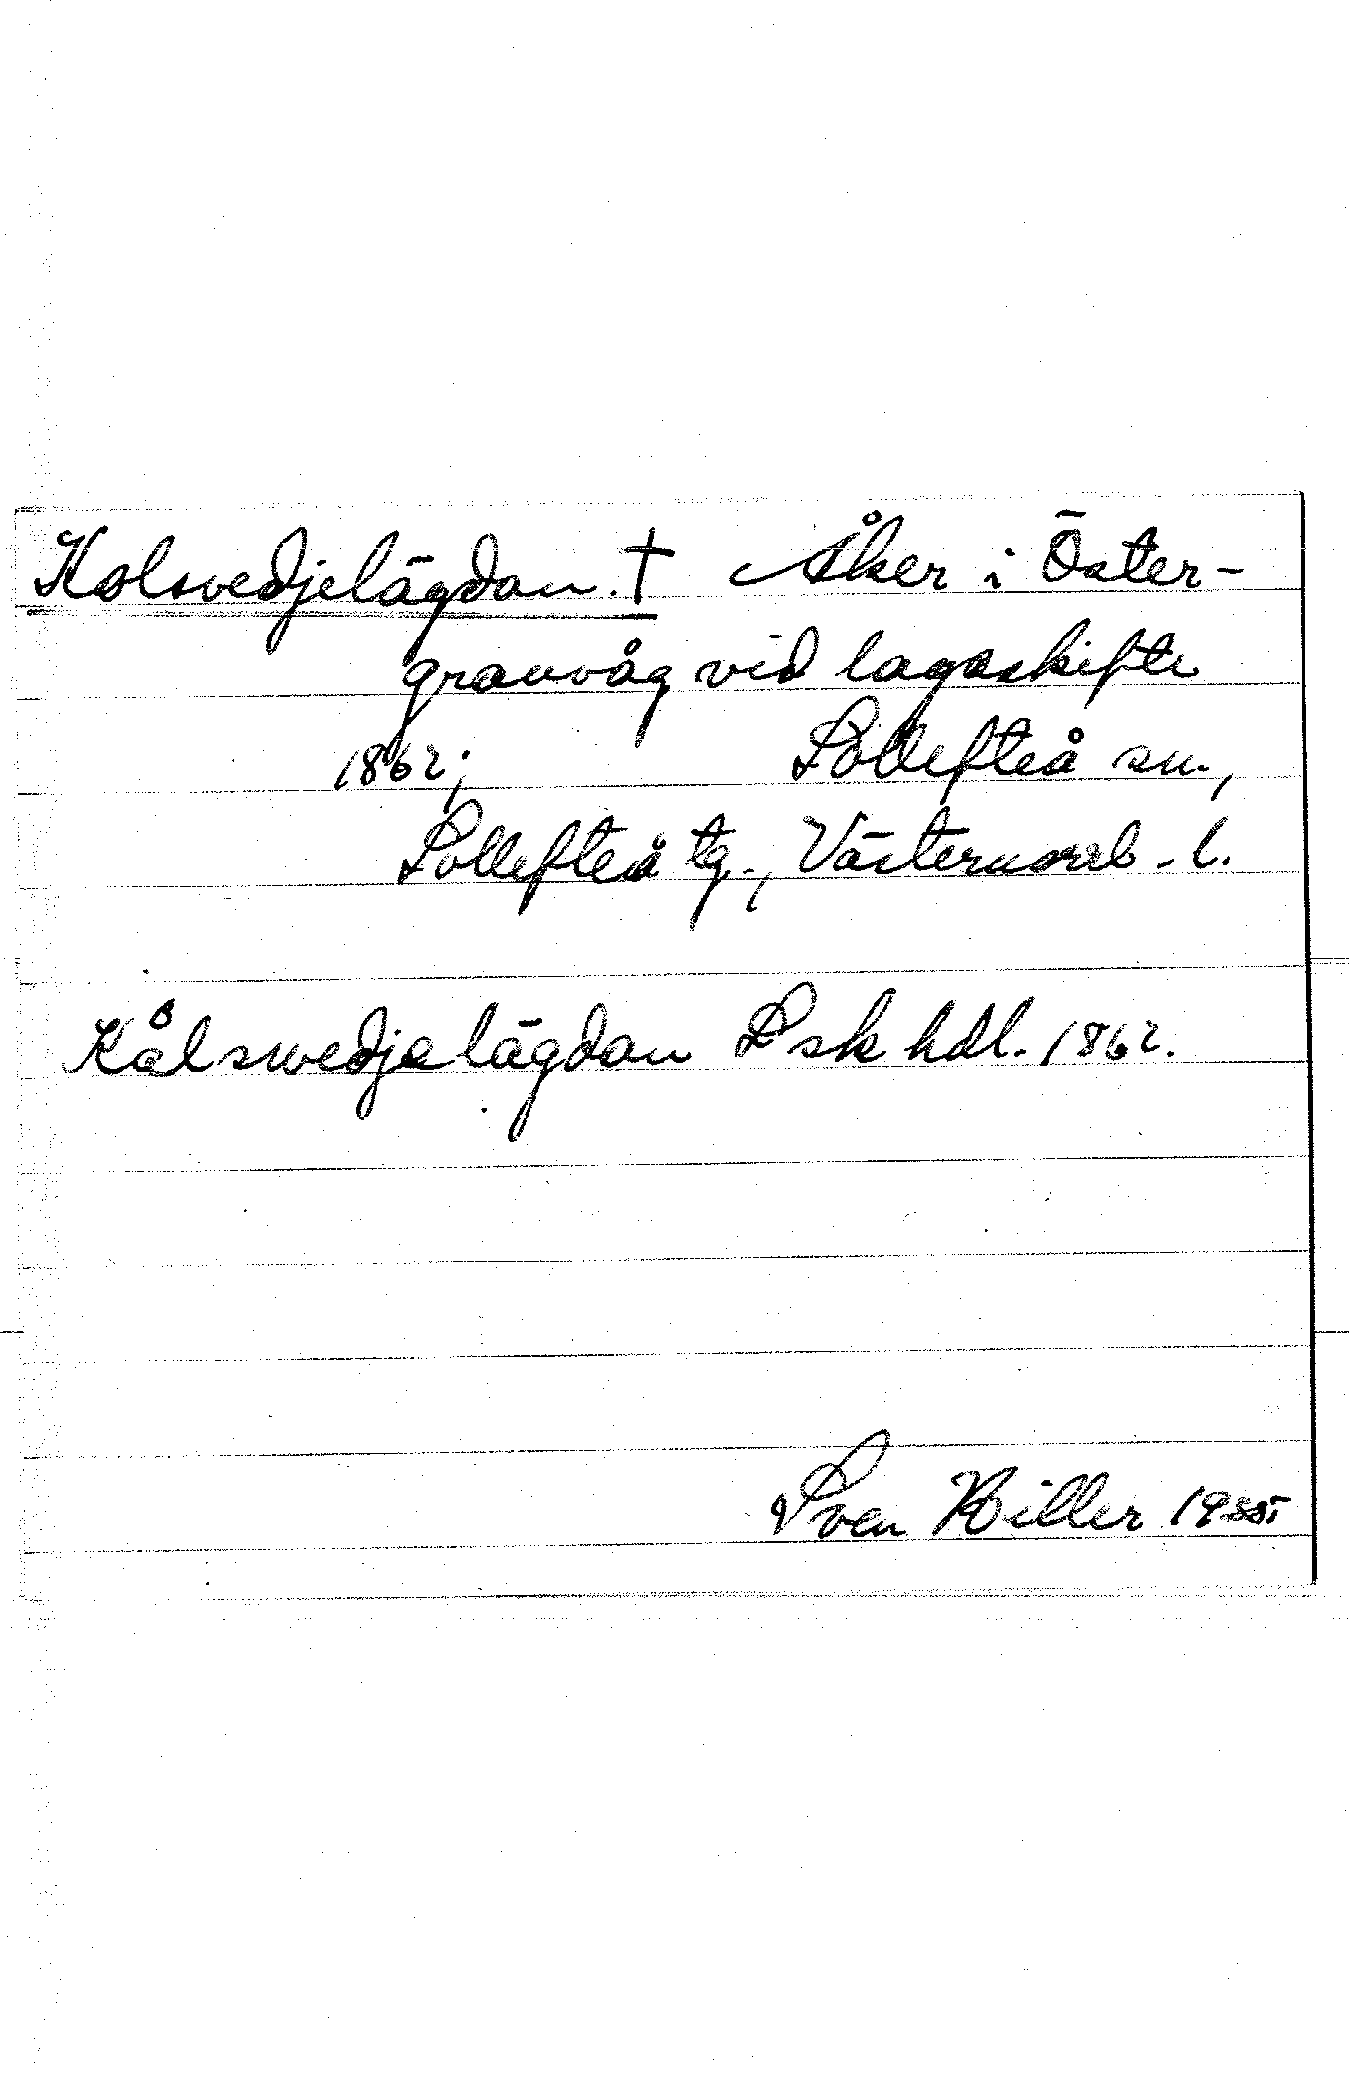 Kolsvedjelägdan. † Åker i Öster-
granvåg vid lagaskifte
1862; Sollefteå sn.,
Sollefteå tg., Västernorrl. l.
Kålswedjelägdan Lsk hdl. 1862.
Sven Hiller 1935